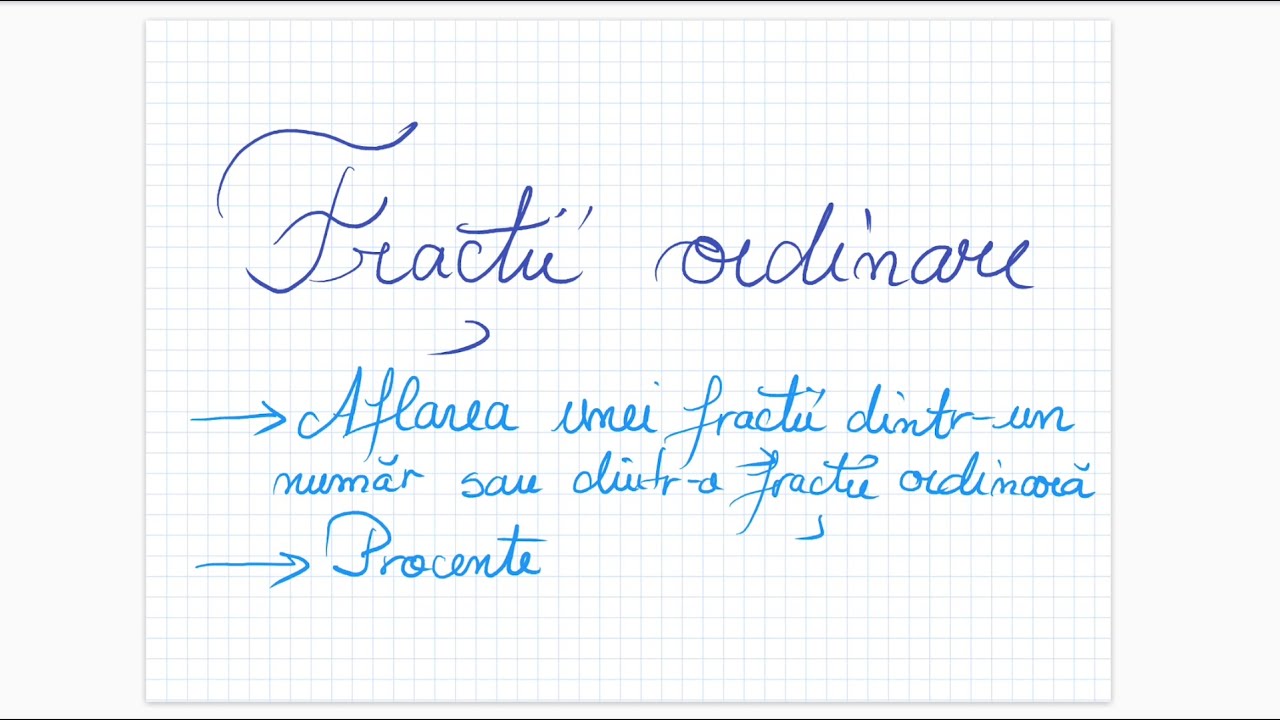 Fracții ordinare
→ Aflarea unei fractii dintr-un
număr sau dintr-o fracție ordinară
→ Procente